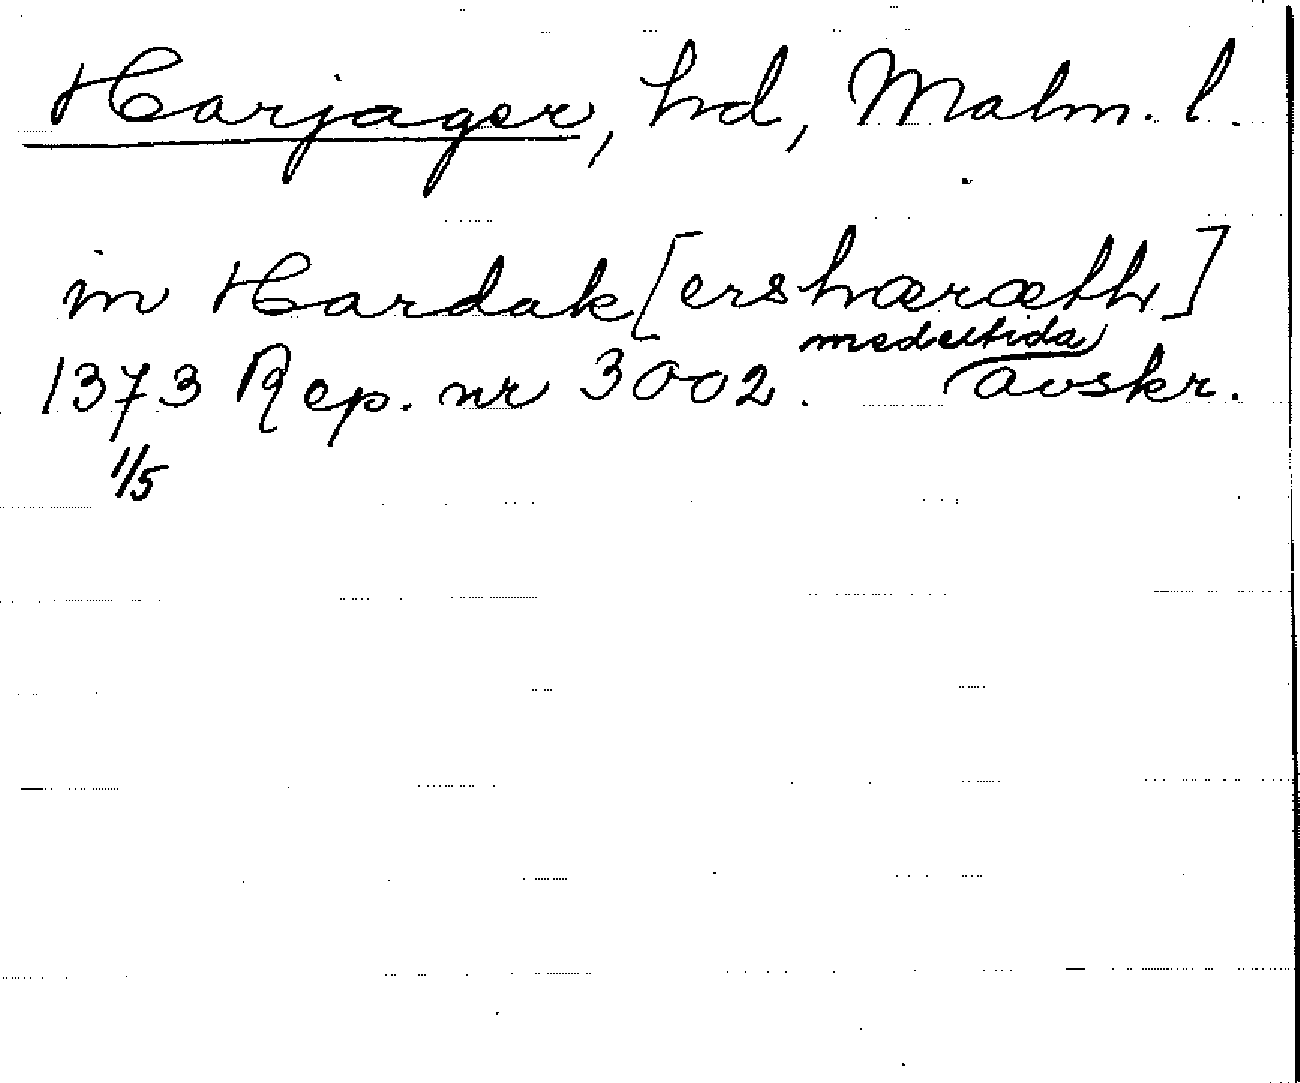 Harjager, hd, Malm. l.
in Hardak[ershæræth]
1373 Rep. nr 3002. medeltida avskr.
1/5